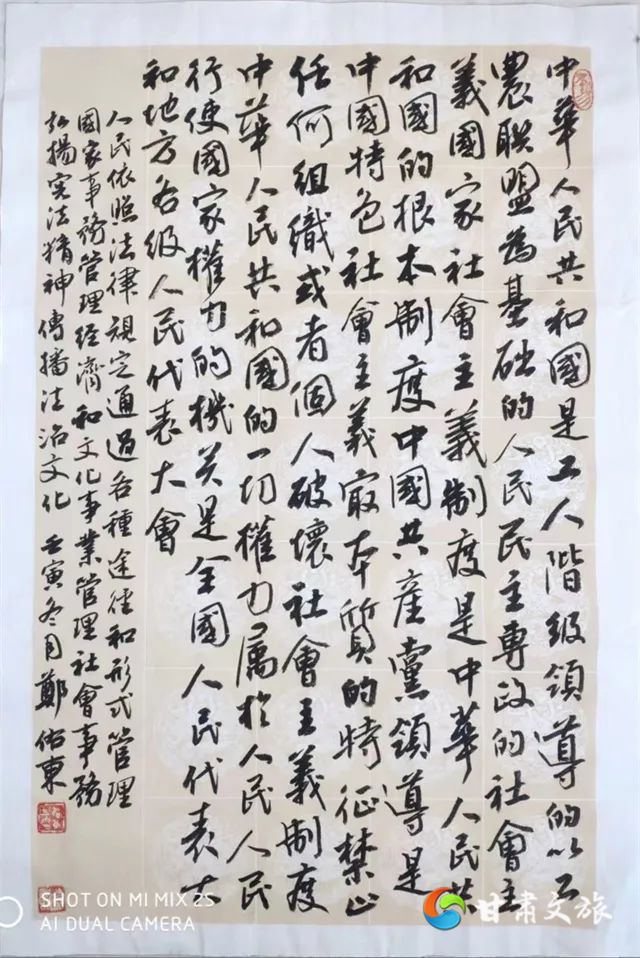 中華人民共和國是工人階級領導的以工
農联盟為基础的人民民主專政的社會主
義國家社會主義制度是中華人民共
和國的根本制度中國共産黨領導是
中國特色社會主義最本質的特征禁止
任何組織或者個人破壞社會主義制度
中華人民共和國的一切權力属於人民人民
行使國家權力的機关是全國人民代表大
和地方各级人民代表大會
人民依照法律規定通過各種途径和形式管理
國家事務管理經濟和文化事業管理社會事務
弘揚宪法精神傳播法治文化 壬寅冬月鄭佑東
SHOT ON MI MIX 2S
AI DUAL CAMERA
甘肃文旅